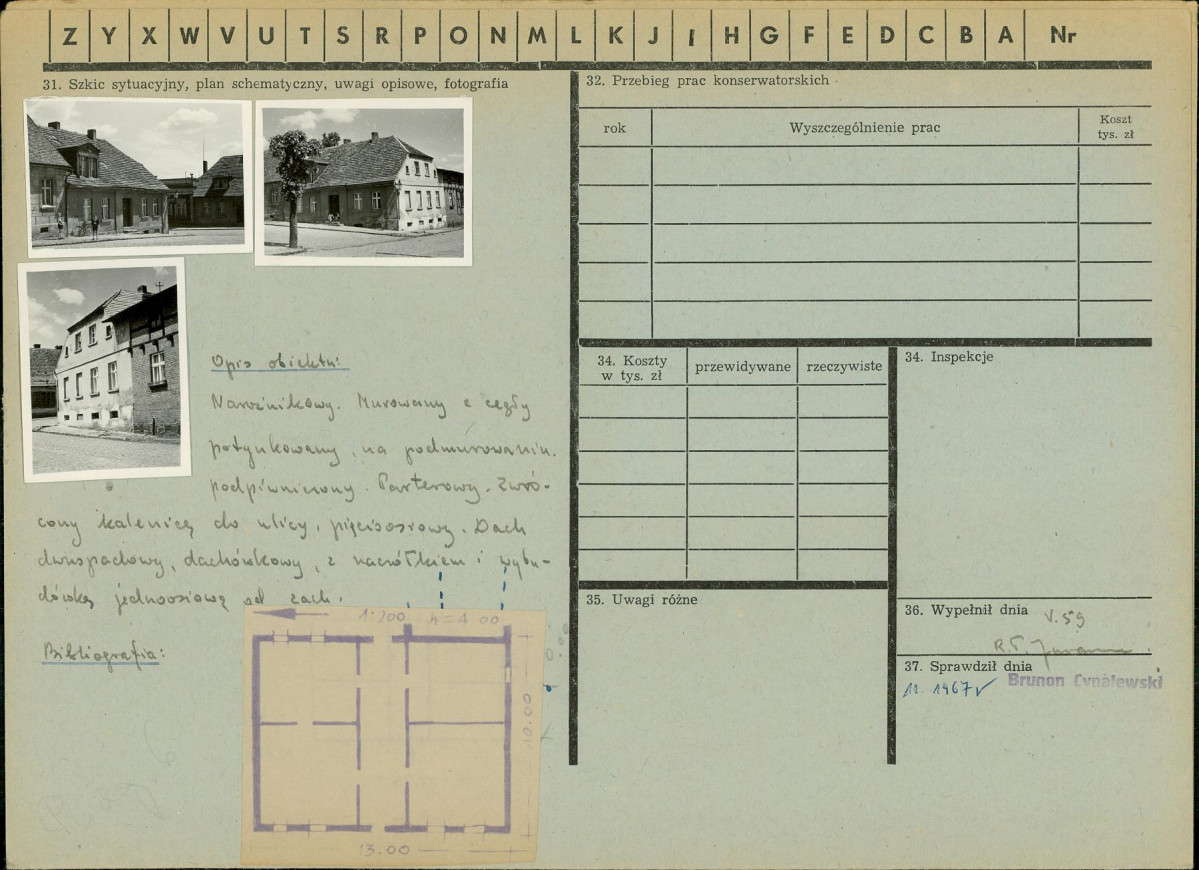 Z Y X W V U T S R P O N M L K J I H G F E D C B A Nr
31. Szkic sytuacyjny, plan schematyczny, uwagi opisowe, fotografia
Opis obiektu:
Narożnikowy. Murowany z cegły
potynkowany, na podmurowaniu.
podpiwniczony. Parterowy. Zwró-
cony kalenicą do ulicy, pięcioosiowy. Dach
dwuspadowy, dachówkowy, z naczółkiem i wybu-
dówką jednoosiową od zach.
Bibliografia:
h = 4.00
10.00
13.00
32. Przebieg prac konserwatorskich
rok
Wyszczególnienie prac
Koszt
tys. zł
34. Koszty
w tys. zł
przewidywane
rzeczywiste
34. Inspekcje
35. Uwagi różne
36. Wypełnił dnia
V.59
37. Sprawdził dnia
11. 1967
Brunon Cynalewski